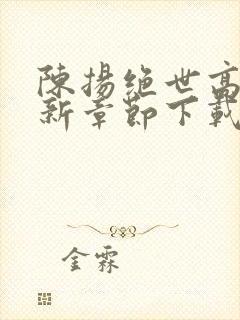 陳揚绝世高
新章節下載
金霖